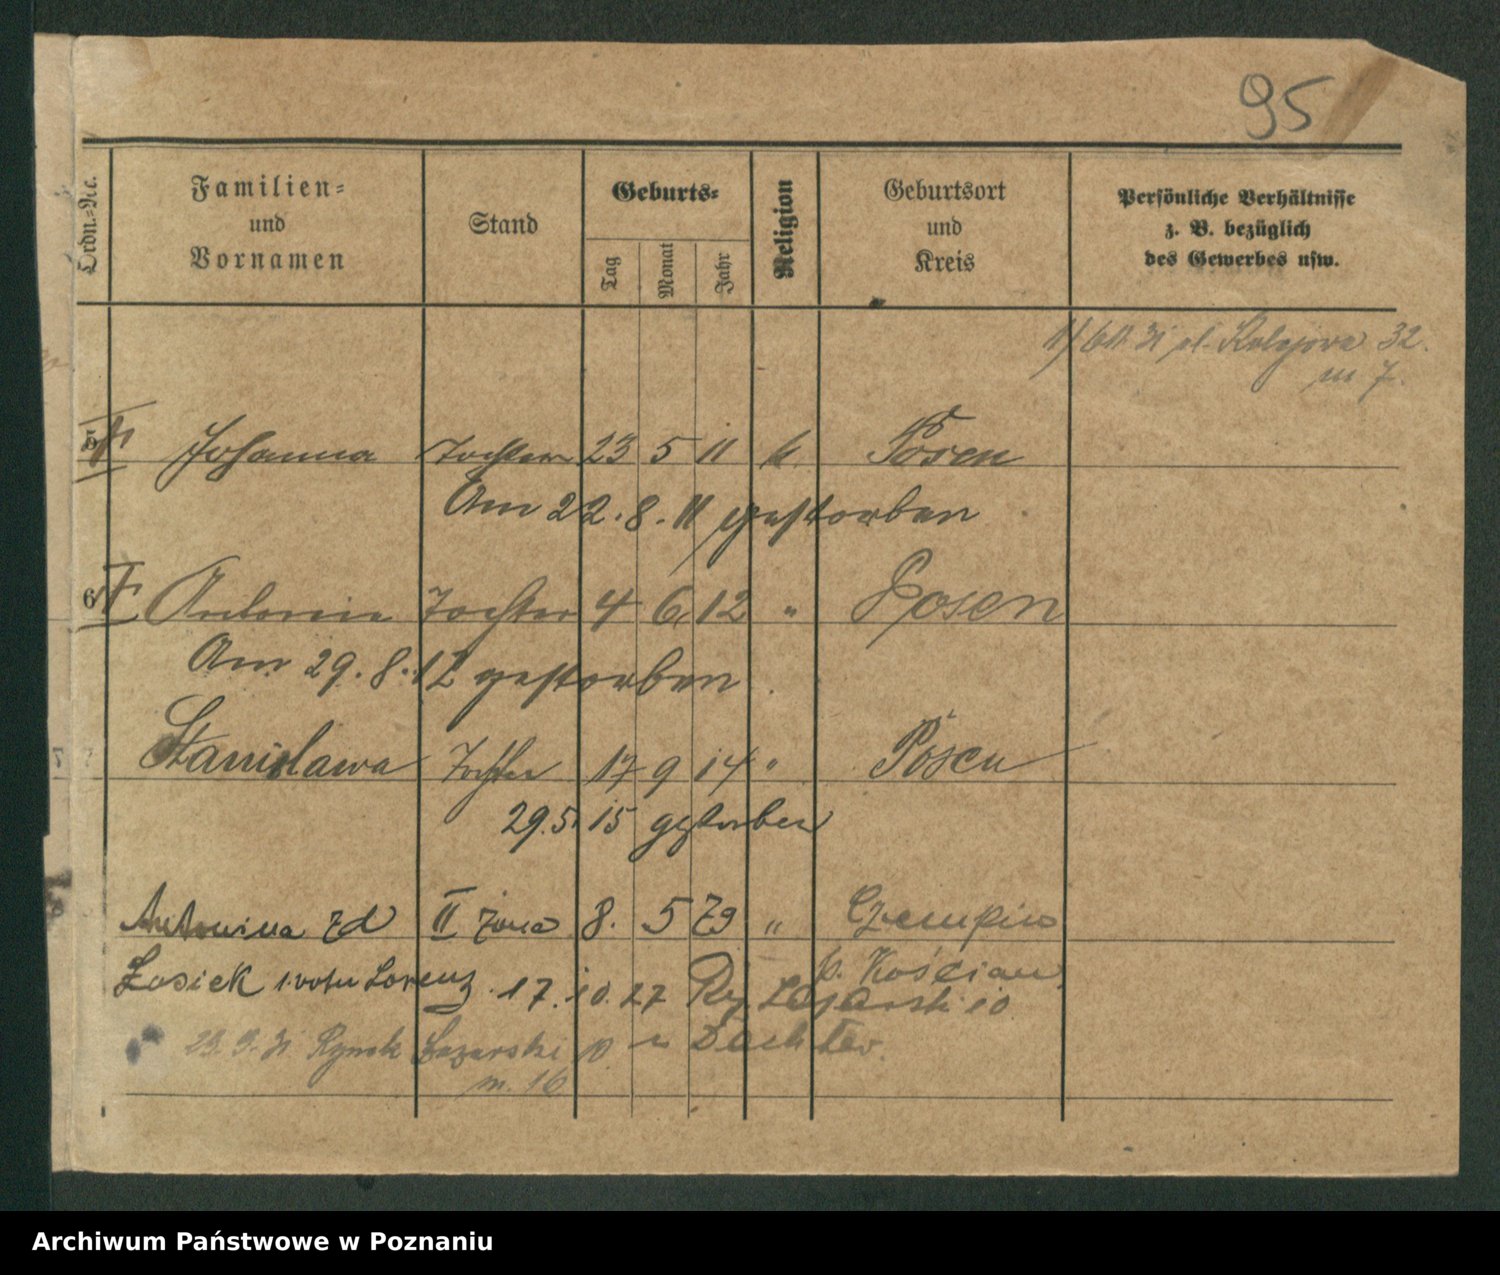 95
Ordn.=Nr.
Familien= und Vornamen
Stand
Geburts=
Tag
Monat
Jahr
Religion
Geburtsort und Kreis
Persönliche Verhältnisse z. B. bezüglich des Gewerbes usw.
31 Kolejowa 32.
m 7.
5 Johanna Tochter 23 5 11 k. Posen
Am 22.8.11 gestorben
6 Antonie Tochter 4 6 12 " Posen
Am 29.8.12 gestorben
Stanislawa Tochter 17 9 14 " Posen
29.5.15 gestorben
Antonina zd II żona 8. 5 79 " Czempiń
Łosiek 1. votu Lorenz. p. Kościan
17.10.27 Ry Łazarski 10
23.9.31 Rynek Łazarski 10
m. 16
Archiwum Państwowe w Poznaniu